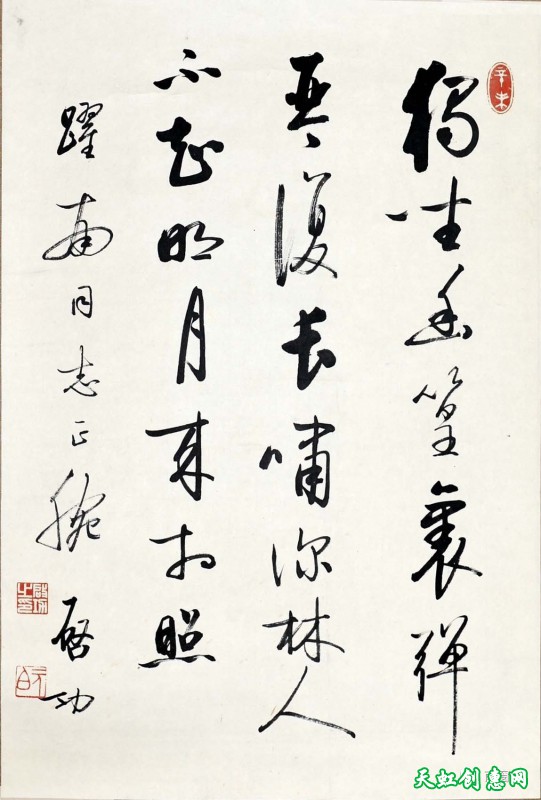 辛未
獨坐幽篁裏彈
琴復長嘯深林人
不知明月來相照
躍南同志正腕
啓功
啟功之印
元白
天虹创意网